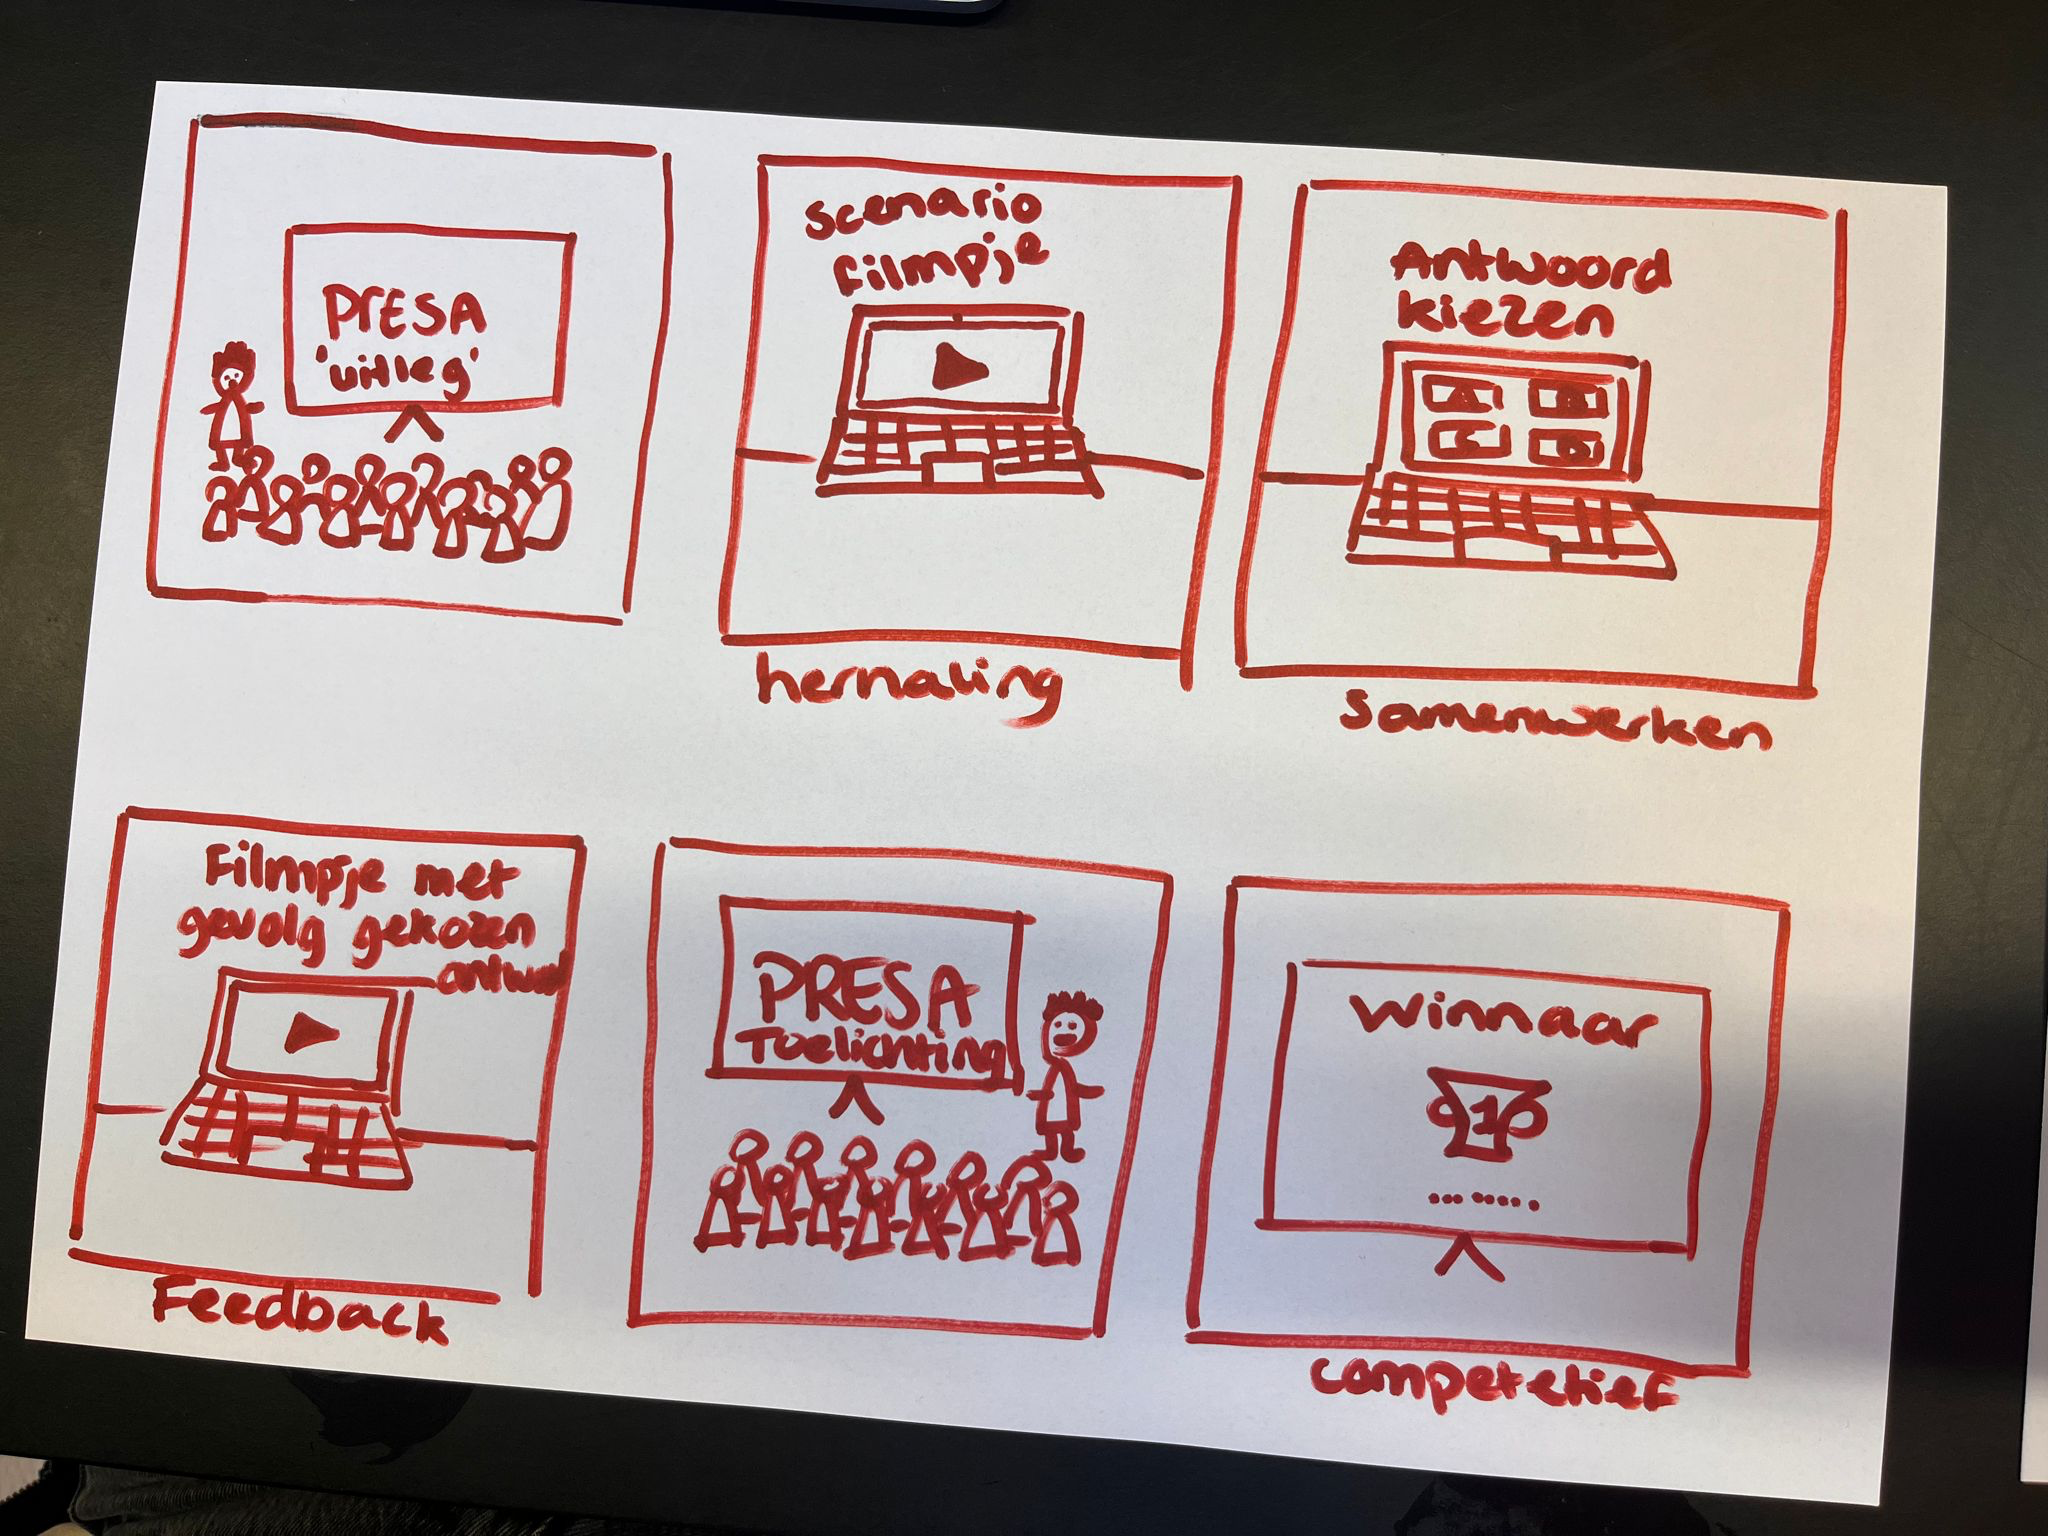 PrESA
'uitleg'
Scenario
Filmpje
herhaling
Antwoord
kiezen
A B
C D
Samenwerken
Filmpje met
gevolg gekozen
antwd
Feedback
PRESA
Toelichting
Winnaar
1
competetief